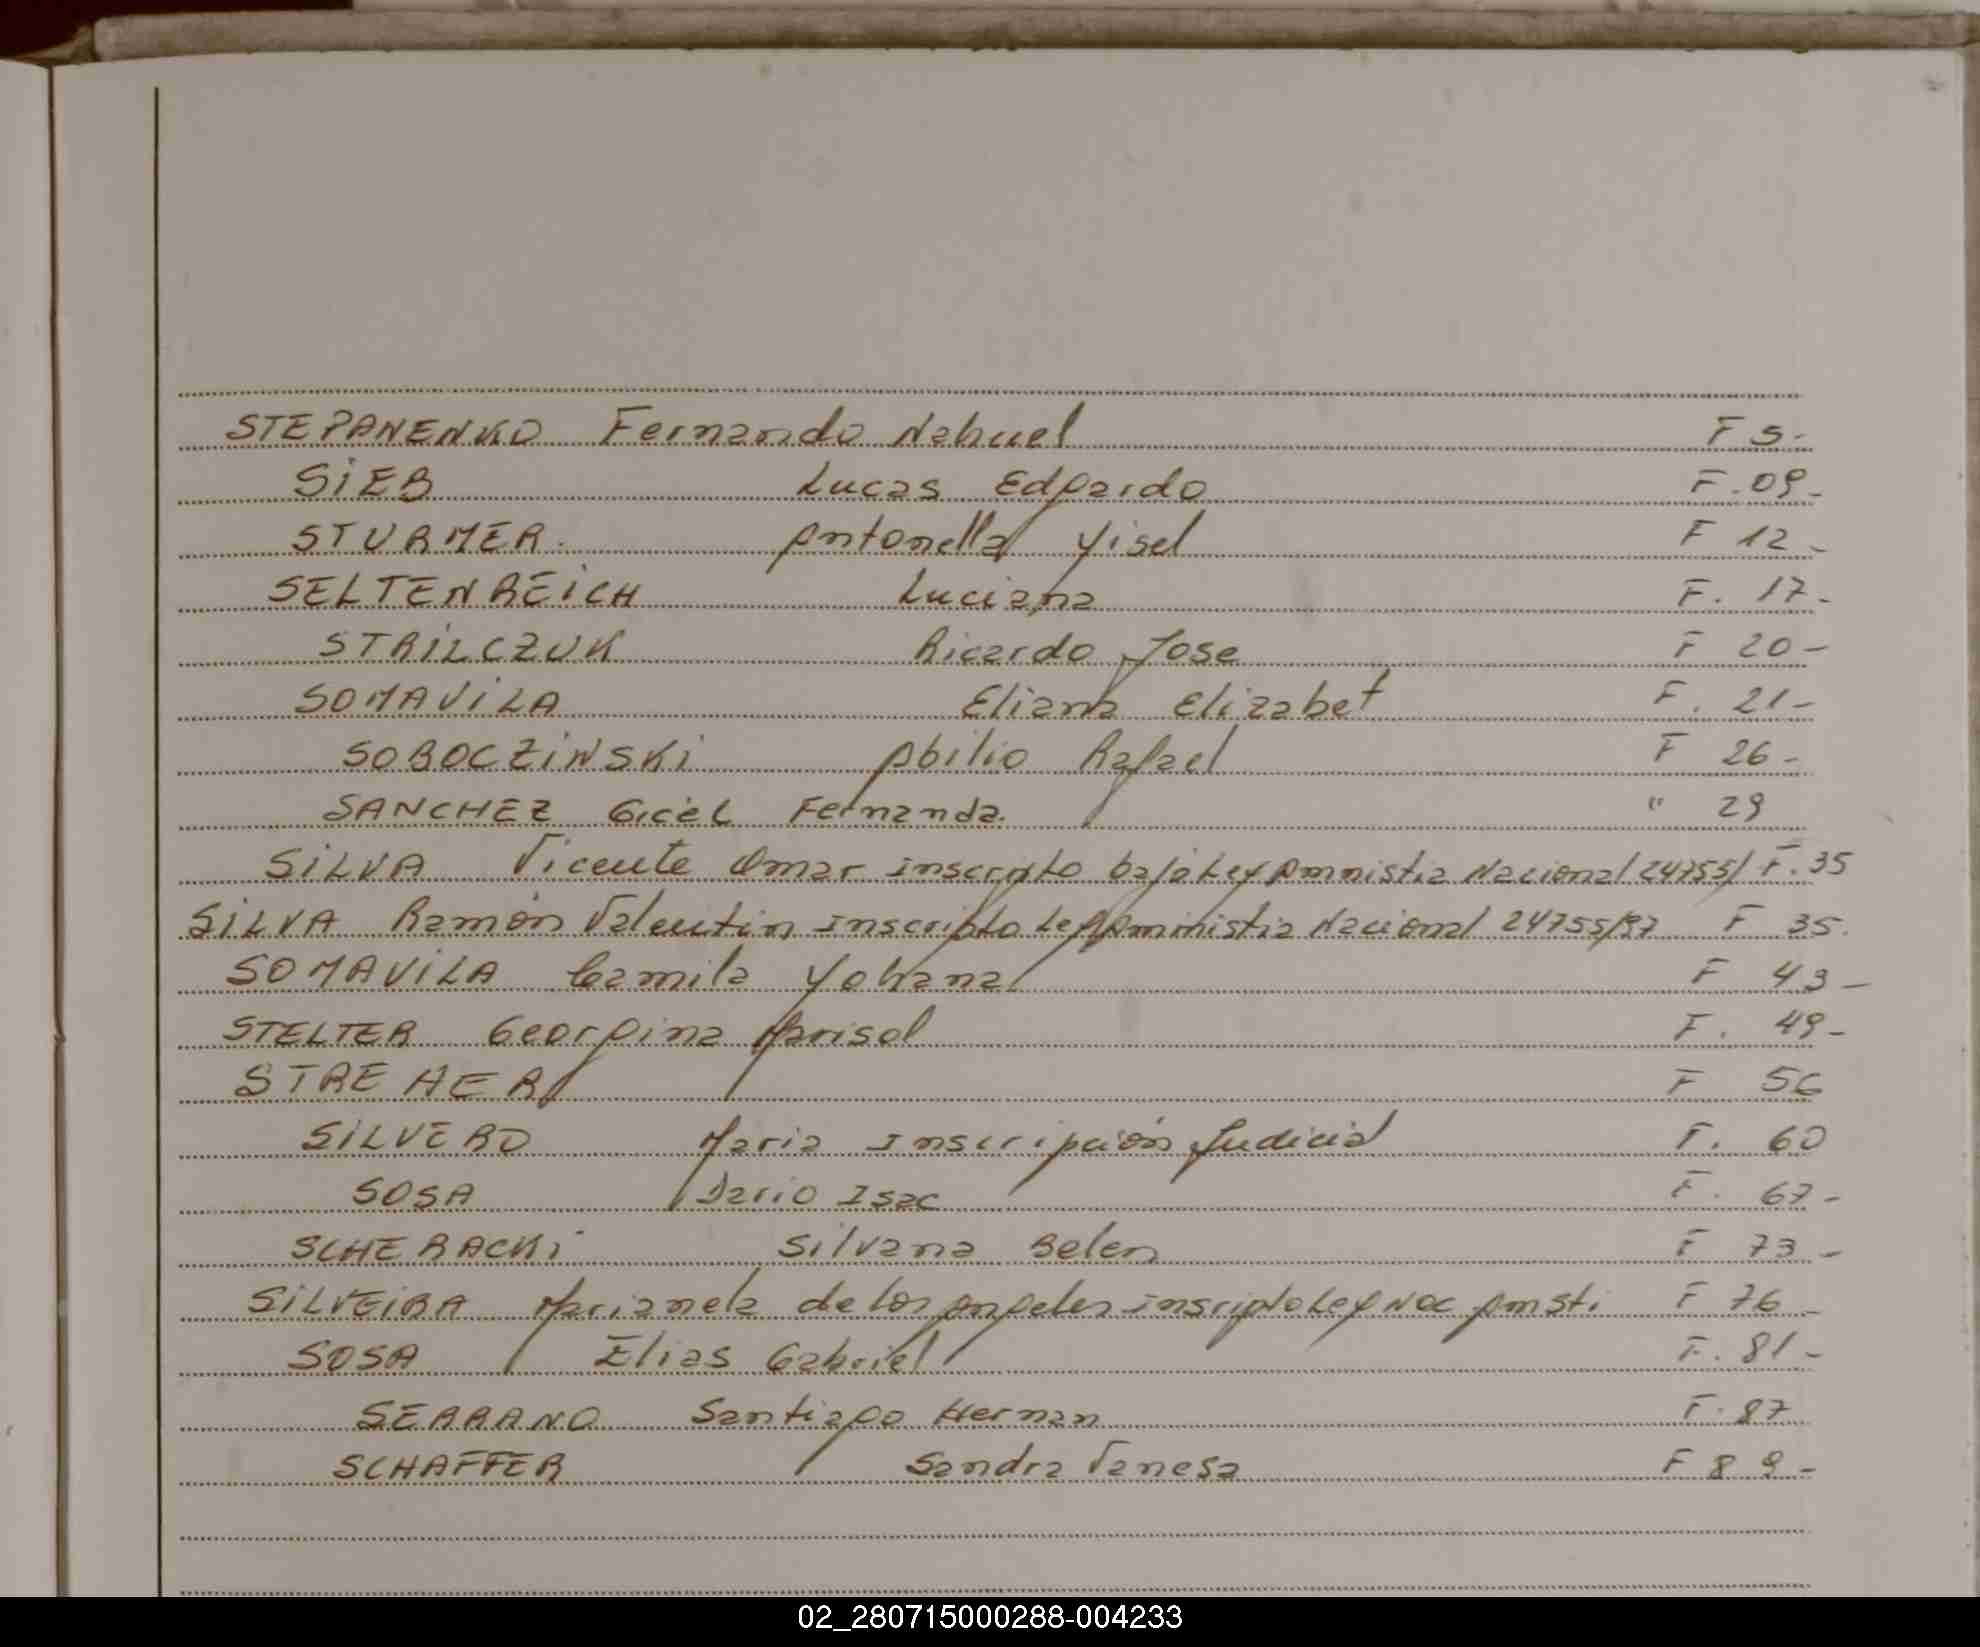 STEPANENKO Fernando Nahuel F 5-
SiEB Lucas Edgardo F. 09-
STURMER. Antonella Yisel F 12-
SELTENREiCH Luciana F. 17-
STRiLCZUK Ricardo Jose F 20-
SOMAViLA Eliana Elizabet F. 21-
SOBOCZiNSKi Abilio Rafael F 26-
SANCHEZ Gicel Fernanda. " 29
SiLVA Vicente Omar inscripto baja Ley Amnistia Nacional 24755/ F. 35
SiLVA Ramón Valentin inscripto Ley Aministia Nacional 24755/97 F 35.
SOMAViLA Camila Yohana F 43-
STELTER Georgina Marisol F. 49-
STREHER F 56
SiLVERO Maria Inscripción Judicial F. 60
SOSA Dario Isac F. 67-
SCHERACKi Silvana Belen F 73-
SiLVEiRA Marianela de los Angeles inscripto Ley Nac Amsti. F 76-
SOSA Elias Gabriel F. 81-
SERRANO Santiago Hernan F. 87
SCHAFFER Sandra Vanesa F 89-
02_280715000288-004233